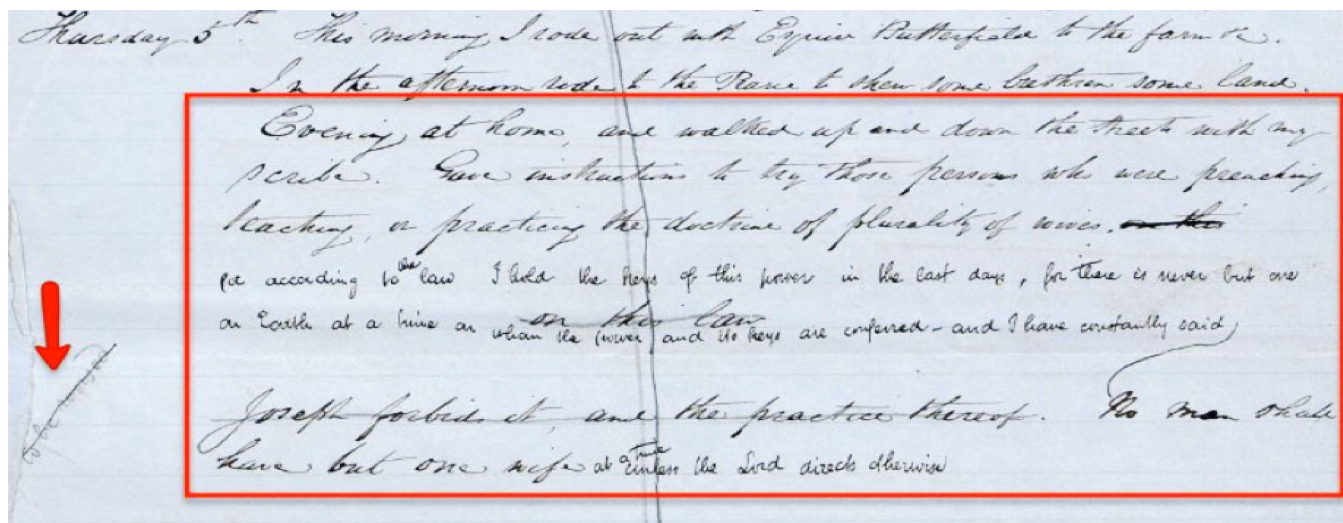 Thursday 5th. This morning I rode out with Esquire Butterfield to the farm &c.
In the afternoon rode to the Prarie to shew some brethren some land.
Evening at home, and walked up and down the streets with my
scribe. Gave instructions to try those persons who were preaching,
teaching, or practicing the doctrine of plurality of wives. on this
for according to the law I hold the keys of this power in the last days, for there is never but one
on this law
on Earth at a time on whom the power and its keys are conferred - and I have constantly said
Joseph forbids it, and the practice thereof. No man shall
have but one wife at a time unless the Lord directs otherwise
to be revised